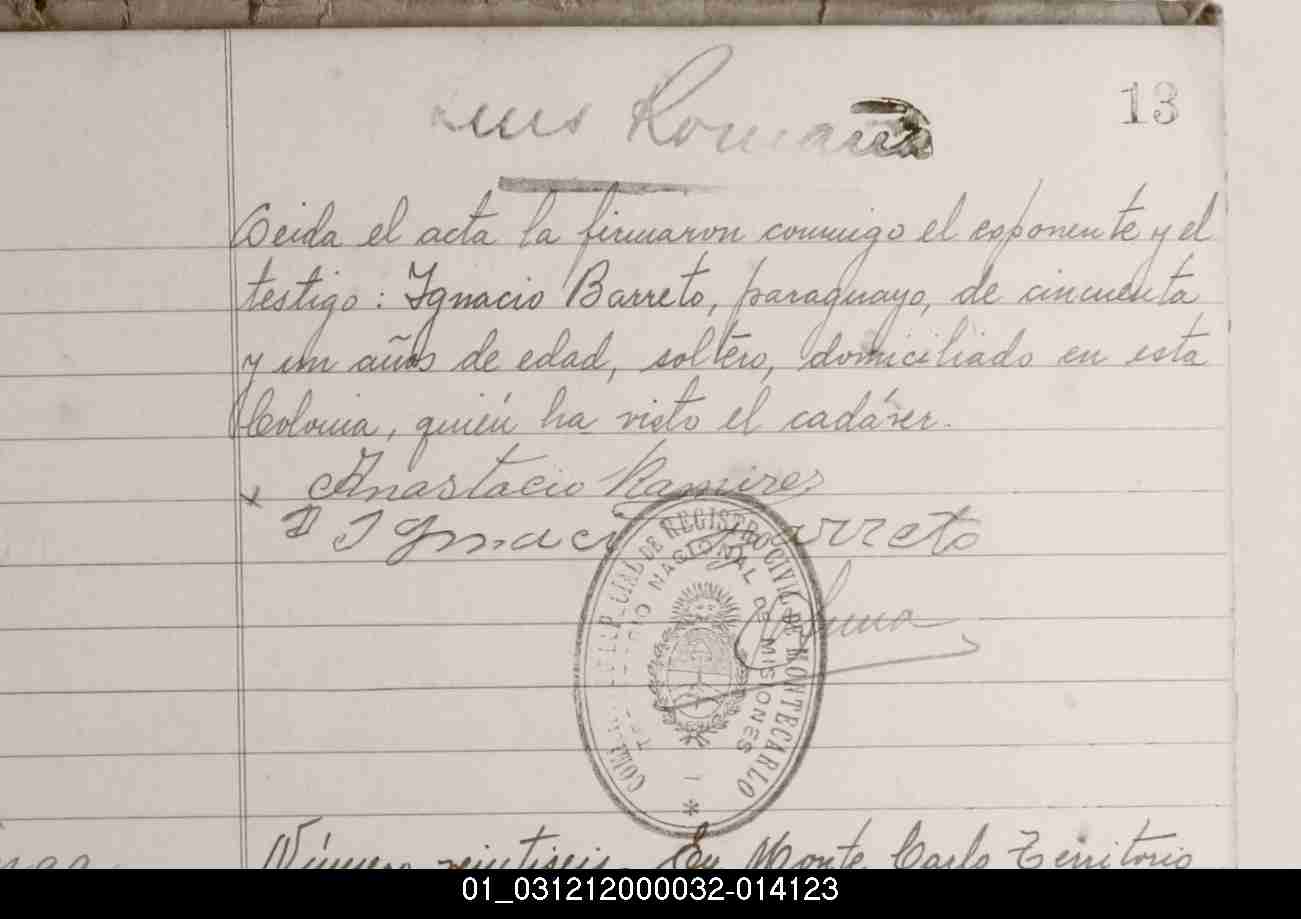 Luis Romana
13
Leida el acta la firmaron conmigo el esponente y el
testigo: Ignacio Barreto, paraguayo, de cincuenta
y un años de edad, soltero, domiciliado en esta
Colonia, quién ha visto el cadáver.
Anastacio Ramirez
Ignacio Barreto
REGISTRO CIVIL DE MONTECARLO
NACIONAL DE MISIONES
Número veintiseis. En Monte Carlo Territorio
01_031212000032-014123